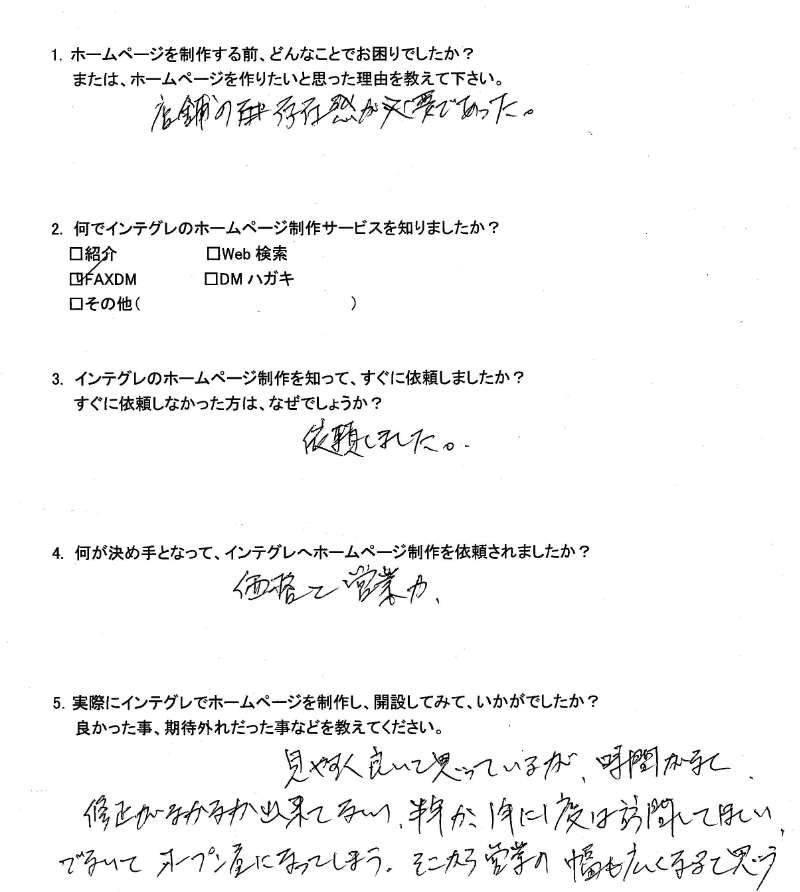 1. ホームページを制作する前、どんなことでお困りでしたか？
または、ホームページを作りたいと思った理由を教えて下さい。
店舗の 存在感が必要であった。
2. 何でインテグレのホームページ制作サービスを知りましたか？
□紹介 □Web 検索
☑FAXDM □DM ハガキ
□その他( )
3. インテグレのホームページ制作を知って、すぐに依頼しましたか？
すぐに依頼しなかった方は、なぜでしょうか？
依頼しました。
4. 何が決め手となって、インテグレへホームページ制作を依頼されましたか？
価格と営業力、
5. 実際にインテグレでホームページを制作し、開設してみて、いかがでしたか？
良かった事、期待外れだった事などを教えてください。
見やすく良いと思っているが、時間がなく、
修正がなかなか出来てない、半年か、1年に1度は訪問してほしい、
でないと オープン屋になってしまう。そこから営業の幅も広くなると思う